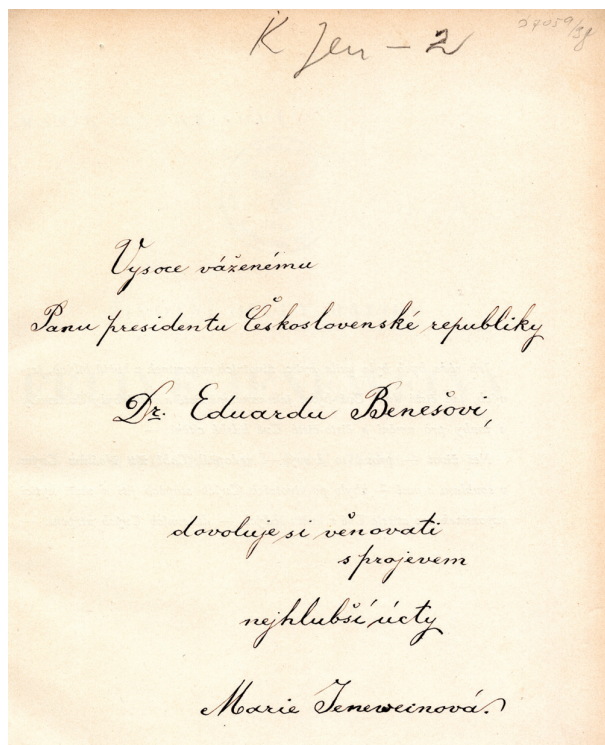 K Jen - 2
D4059/38
Vysoce váženému
Panu presidentu Československé republiky
Dr. Eduardu Benešovi,
dovoluje si věnovati
s projevem
nejhlubší úcty
Marie Jeneweinová.